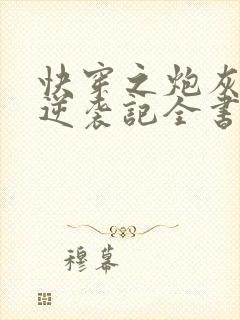 快穿之炮灰
逆袭記全書
穆幕